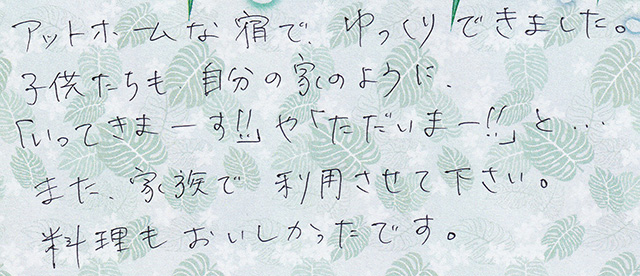 アットホームな宿で、ゆっくりできました。
子供たちも、自分の家のように、
「いってきまーす!!」や「ただいまー!!」と…
また、家族で利用させて下さい。
料理もおいしかったです。